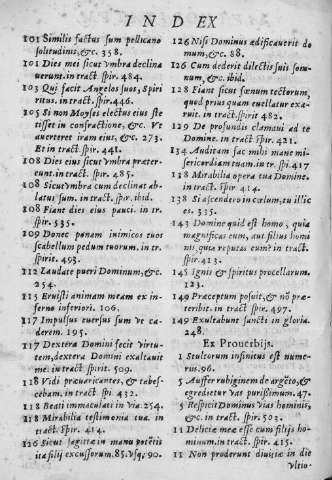 INDEX
101 Similis factus sum pellicano
solitudinis, &c. 358.
101 Dies mei sicut vmbra declina
uerunt. in tract. spir. 484.
103 Qui facit Angelos suos, Spiri
ritus. in tract. spir. 446.
105 Si non Moyses electus eius ste
tisset in confractione, &c. Vt
auerteret iram eius, &c. 273.
Et in tract. spir. 441.
108 Dies eius sicut vmbra præter-
eunt. in tract. spir. 485.
108 Sicut vmbra cum declinat ab-
latus sum. in tract. spir. ibid.
108 Fiant dies eius pauci. in tr.
spir. 535.
109 Donec ponam inimicos tuos
scabellum pedum tuorum. in tr.
spirit. 493.
112 Laudate pueri Dominum, &c.
254.
115 Eruisti animam meam ex in-
ferno inferiori. 106.
117 Impulsus euersus sum vt ca-
derem. 195.
117 Dextera Domini fecit virtu-
tem, dextera Domini exaltauit
me. in tract. spirit. 509.
118 Vidi præuaricantes, & tabes-
cebam. in tract. spi. 432.
118 Beati immaculati in via. 254.
118 Mirabilia testimonia tua. in
tract. spir. 414.
126 Sicut sagittæ in manu potētis
ita filij excussorum. 85. vsq; 90.
126 Nisi Dominus ædificauerit do
mum, &c. 88.
126 Cum dederit dilectis suis som-
num, &c. ibid.
128 Fiant sicut fœnum tectorum,
quod prius quam euellatur exa-
ruit. in tract. spirit 482.
129 De profundis clamaui ad te
Domine. in tract. spir. 421.
134 Auditam fac mihi mane mi-
sericordiam tuam. in tr. spi. 417
138 Mirabilia opera tua Domine.
in tract. spir. 414.
138 Si ascendero in cœlum, tu illic
es. 335.
143 Domine quid est homo, quia
magnificas eum, aut filius homi
nis, quia reputas eum? in tract.
spir. 413.
145 Ignis & spiritus procellarum.
123.
149 Præceptum posuit, & nō præ-
teribit. in tract. spir. 497.
149 Exultabunt sancti in gloria.
248.
Ex Prouerbijs.
1 Stultorum infinitus est nume-
rus. 96.
5 Auffer rubiginem de argēto, &
egredietur vas purissimum. 47.
5 Respicit Dominus vias hominis,
&c. in tract. spir. 502.
11 Deliciæ meæ esse cum filijs ho-
minum. in tract. spir. 415.
11 Non proderunt diuitiæ in die
vltio-